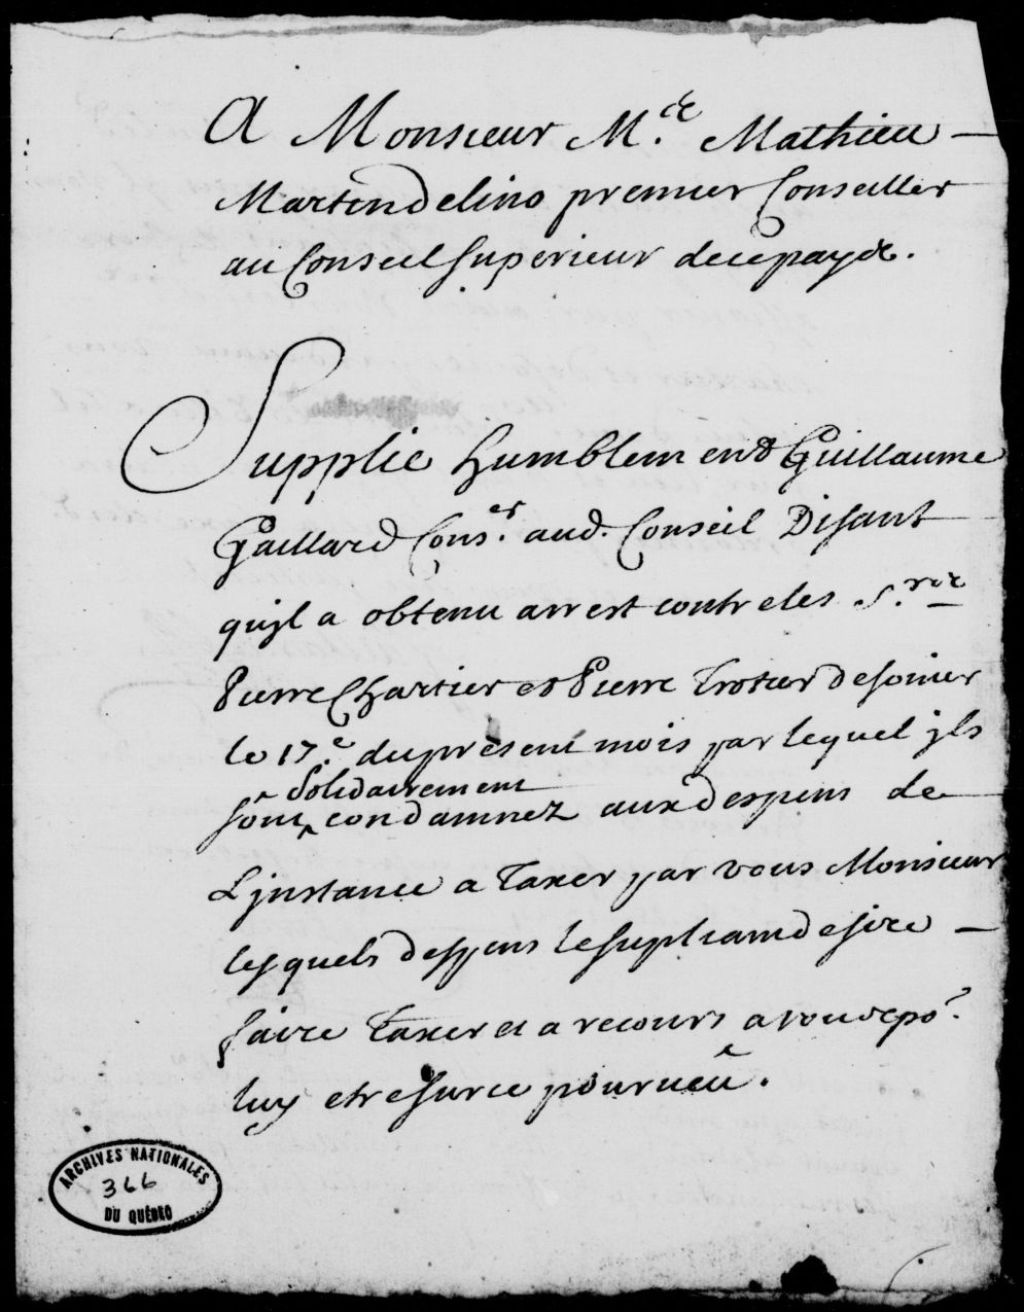 A Monsieur M.e Mathieu
Martin Delino premier Conseiller
au Conseil Superieur de ce pays.
Supplie humblement Guillaume
Gaillard Cons.er aud. Conseil Disant
qu'jl a obtenu arrest contre les S.rs
Pierre Chartier et Pierre Trotier desonier
le 17.e du present mois par lequel jls
solidairement
sont ^ condamnez aux despens de
L'jnstance a Taxer par vous Monsieur
lesquels despens le supliant desire
faire Taxer et a recours a vous po.r
luy etre sur ce pourueu.
ARCHIVES NATIONALES
366
DU QUÉBEC